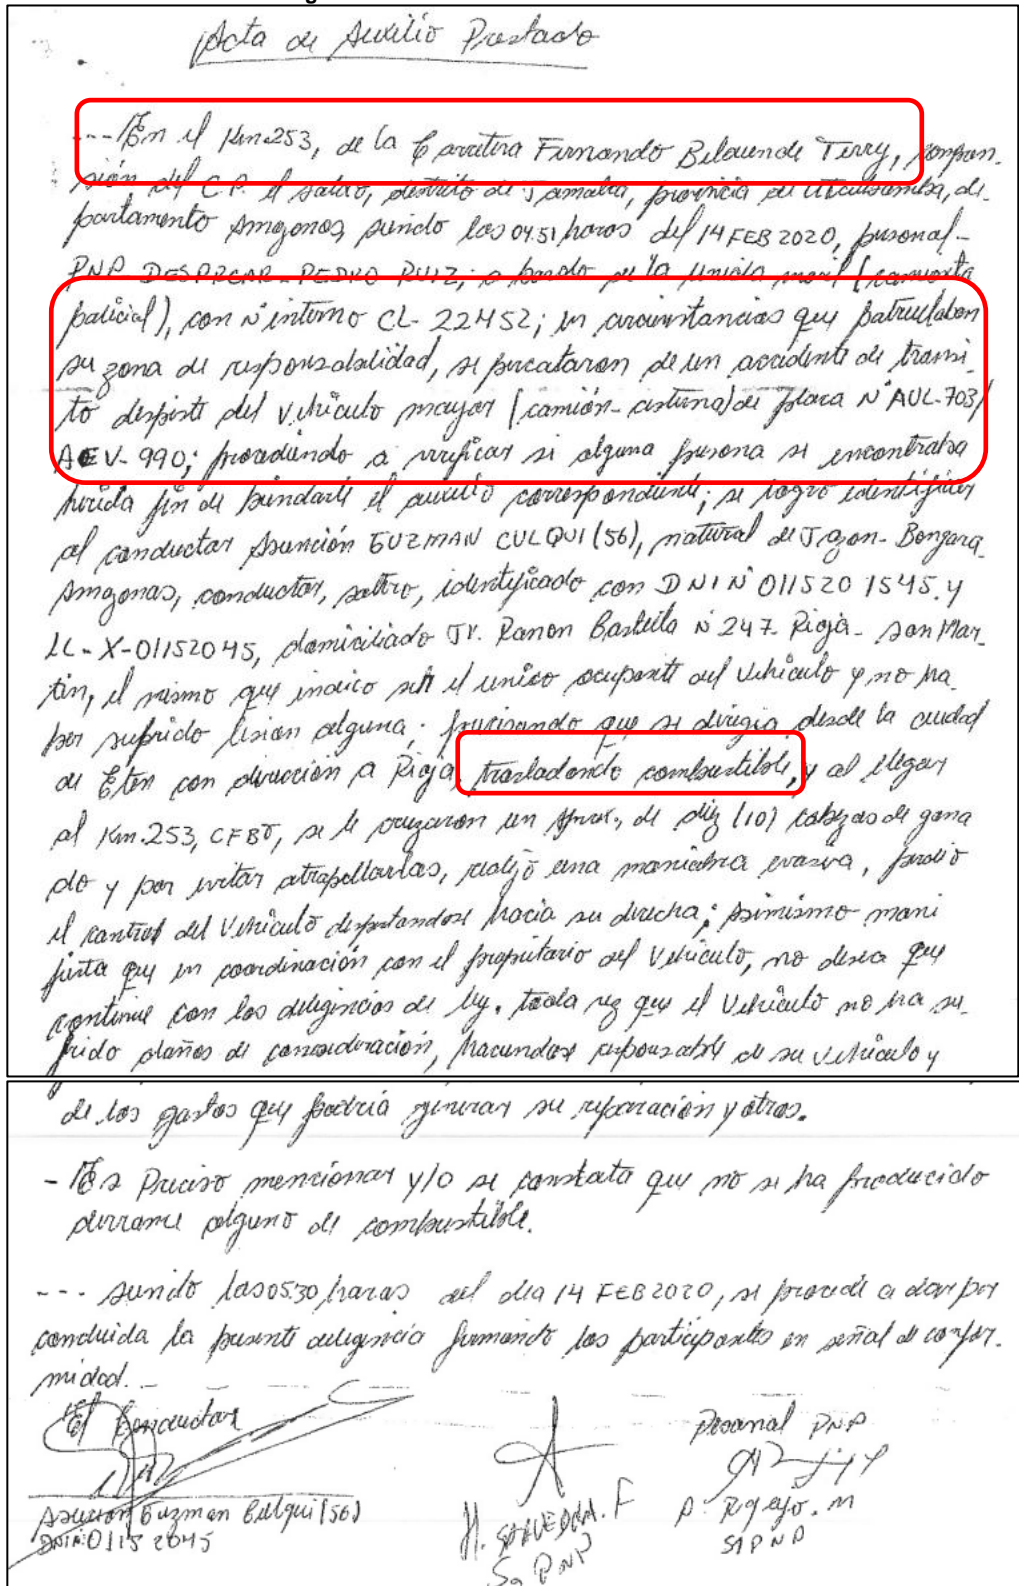 Acta de Auxilio Prestado
--- En el Km.253, de la Carretera Fernando Belaunde Terry, compren-
sión del C.P. el salao, distrito de Jamalca, provincia de Utcubamba, de-
partamento Amazonas, siendo las 04.51 horas del 14 FEB 2020, personal-
PNP DESPRCAR-PEDRO RUIZ; a bordo de la unidad movil (camioneta
policial), con N° interno CL-22452; en circunstancias que patrullaban
su zona de responsabilidad, se percataron de un accidente de transi-
to despiste del vehículo mayor (camión-cisterna) de Placa N° AUL-703/
AEV-990; procediendo a verificar si alguna persona se encontraba
herida fin de brindarle el auxilio correspondiente; se logro identificar
al conductor Asunción GUZMAN CULQUI (56), natural de Jazan-Bongara
Amazonas, conductor, soltero, identificado con DNI N° 011520 1545. y
LC-X-01152045, domiciliado JV. Ramon Castilla N° 247-Rioja-San Mar-
tin, el mismo que indico ser el unico ocupante del vehículo y no ha-
ber sufrido lesion alguna; precisando que se dirigia desde la ciudad
de Eten con dirección a Rioja, trasladando combustible, y al llegar
al Km.253, CFBT, se le cruzaron un aprox., de diez (10) cabezas de gana
do y por evitar atropellarlas, realizó una maniobra evasiva, perdio
el control del Vehículo despistandose hacia su derecha; asimismo mani
fiesta que en coordinación con el propietario del Vehículo, no desea que
continue con las deligencias de ley, toda vez que el Vehículo no ha su-
frido daños de consideración, haciendose responsable de su vehículo y
de los gastos que podria generar su reparación y otros.
- Es Preciso mencionar y/o se constata que no se ha producido
derrame alguno de combustible.
--- siendo las 05:30 horas del dia 14 FEB 2020, se procede a dar por
concluida la presente deligencia firmando los participantes en señal de confor-
midad.-
El Conductor
Personal PNP
Asuncion Guzman Culqui (56)
DNI N: 01152045
H. SAAVEDRA. F
S2 PNP
S1 PNP